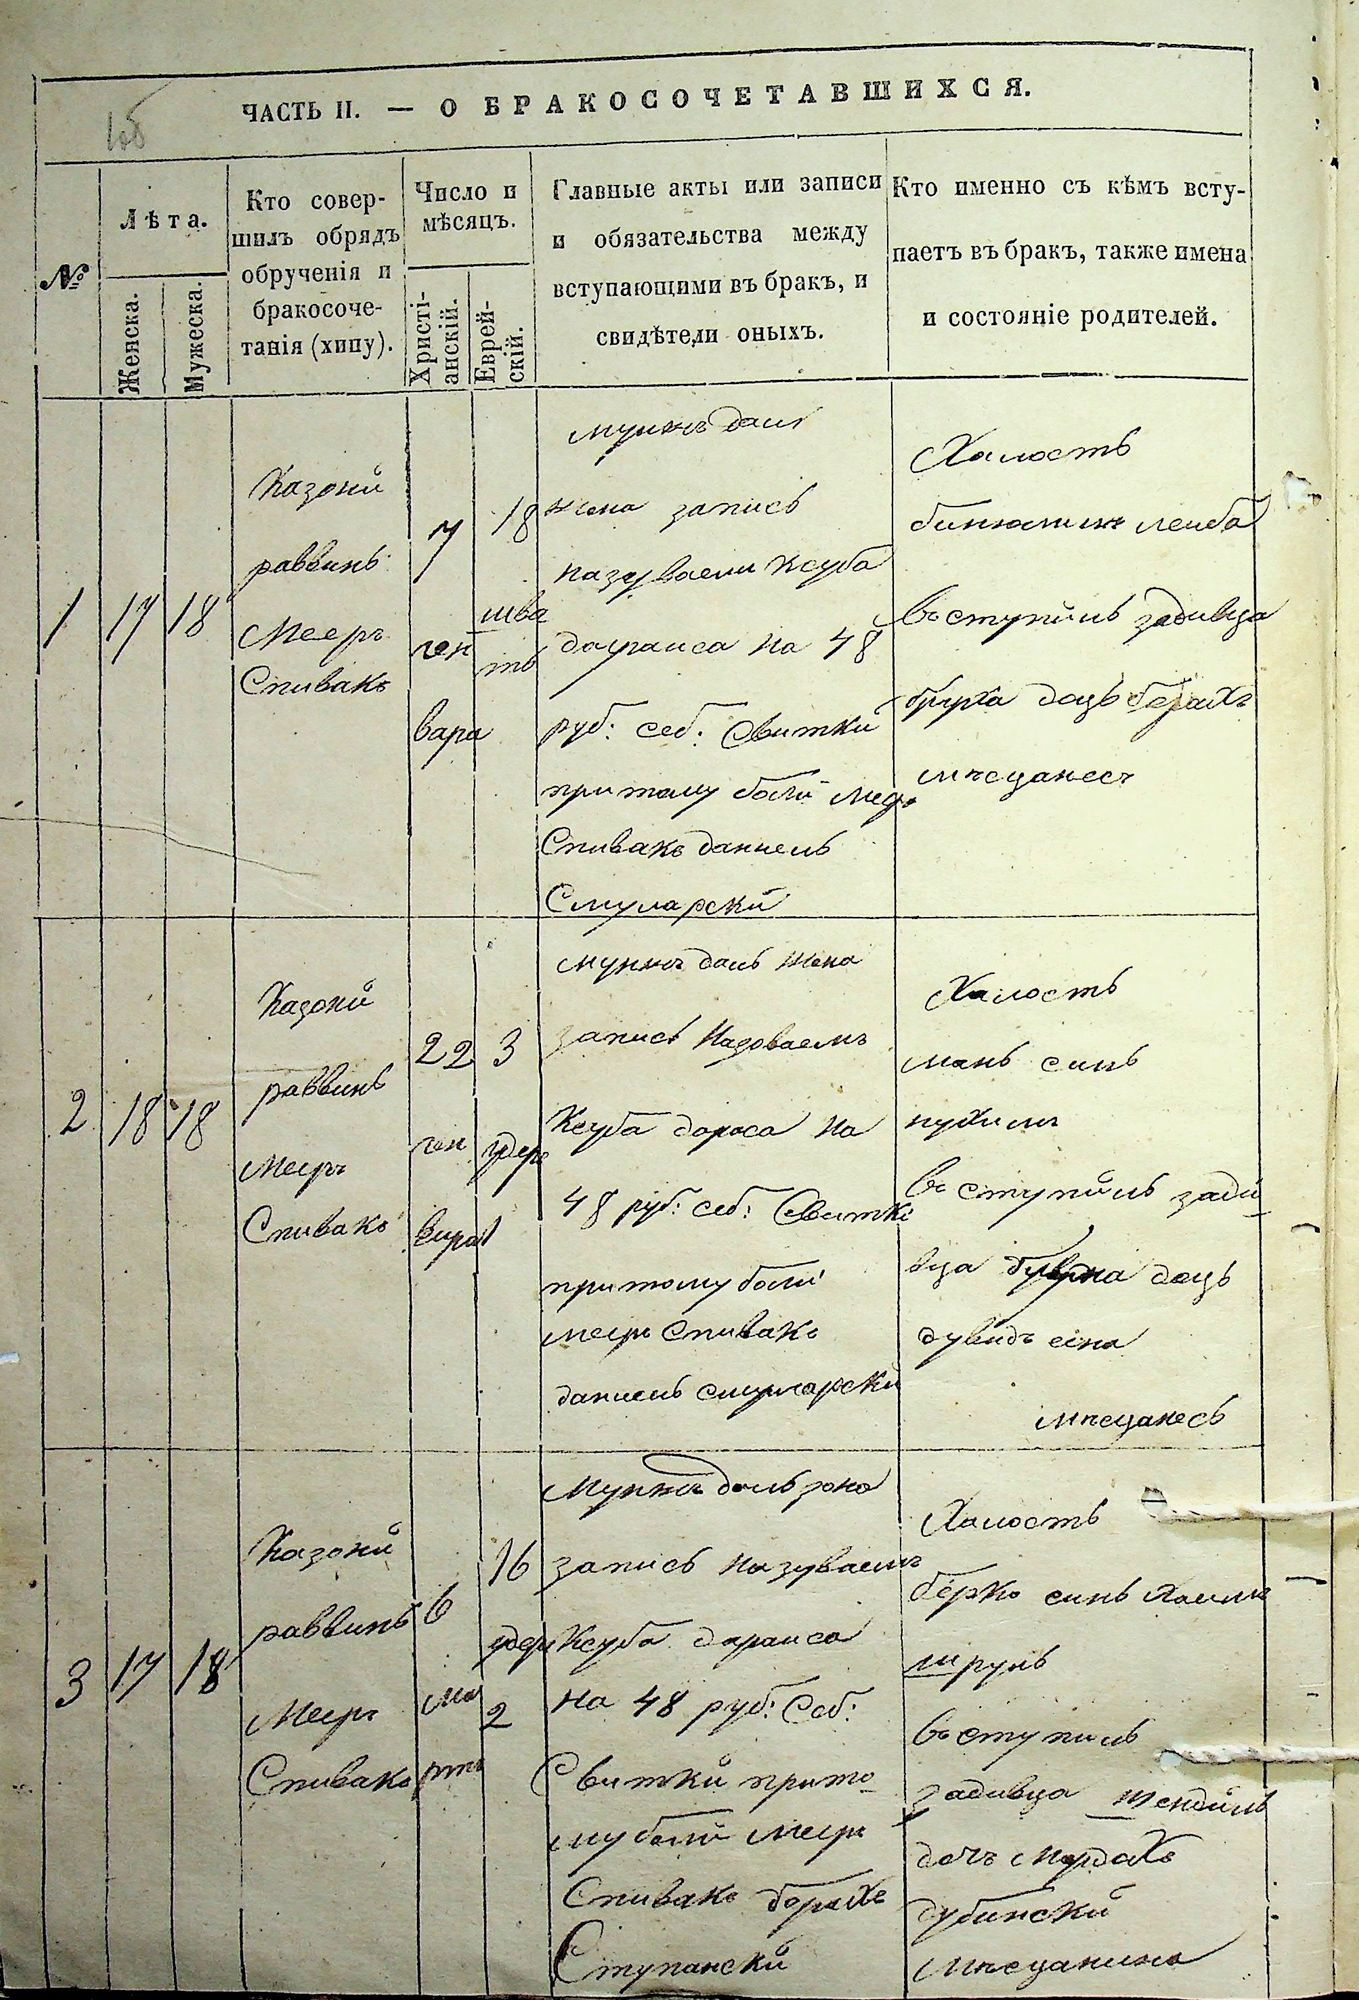 ЧАСТЬ II. — О БРАКОСОЧЕТАВШИХСЯ.
№
Лѣта.
Женска.
Мужеска.
Кто совер-
шилъ обрядъ
обрученія и
бракосоче-
танія (хипу).
Число и
мѣсяцъ.
Христі-
анскій.
Еврей-
скій.
Главные акты или записи
и обязательства между
вступающими въ бракъ, и
свидѣтели оныхъ.
Кто именно съ кѣмъ всту-
паетъ въ бракъ, также имена
и состояніе родителей.
1
17
18
Казони
раввинъ
Мееръ
Спивакъ
7
ген
вара
18
шва
тъ
мункъ далъ
жена запись
назуваеми Ксуба
дараиса на 48
руб: себ: Свитки
притому были Меер
Спивакъ даниель
Смуларски
Халость
бинюминъ леиба
въступилъ задивца
бруха доць борахъ
мѣсцанесъ
2
18
18
Казони
раввинъ
Меиръ
Спивакъ
22
ген
вира
3
удеръ
1
мункъ далъ жена
запись Надоваемъ
Ксуба дораса на
48 руб: себ: Свиткі
притому были
меиръ Спивакъ
даниелъ смуларски
Халость
манъ синъ
нухимъ
въ ступилъ зади
вца доць
дувидъ
мѣсцанесъ
3
17
18
Казони
раввинъ
Меиръ
Спивакъ
6
ма
ртъ
16
удеръ
2
Мункъ далъ зона
запись назуваемъ
Ксуба дараиса
на 48 руб: Себ:
Свитки прито
му были Меиръ
Спивакъ борахъ
Ступански
Халость
берко синъ Хаимъ
шруль
въступилъ
задивца шендиль
дочъ Мордохъ
дубински
мѣсцанина